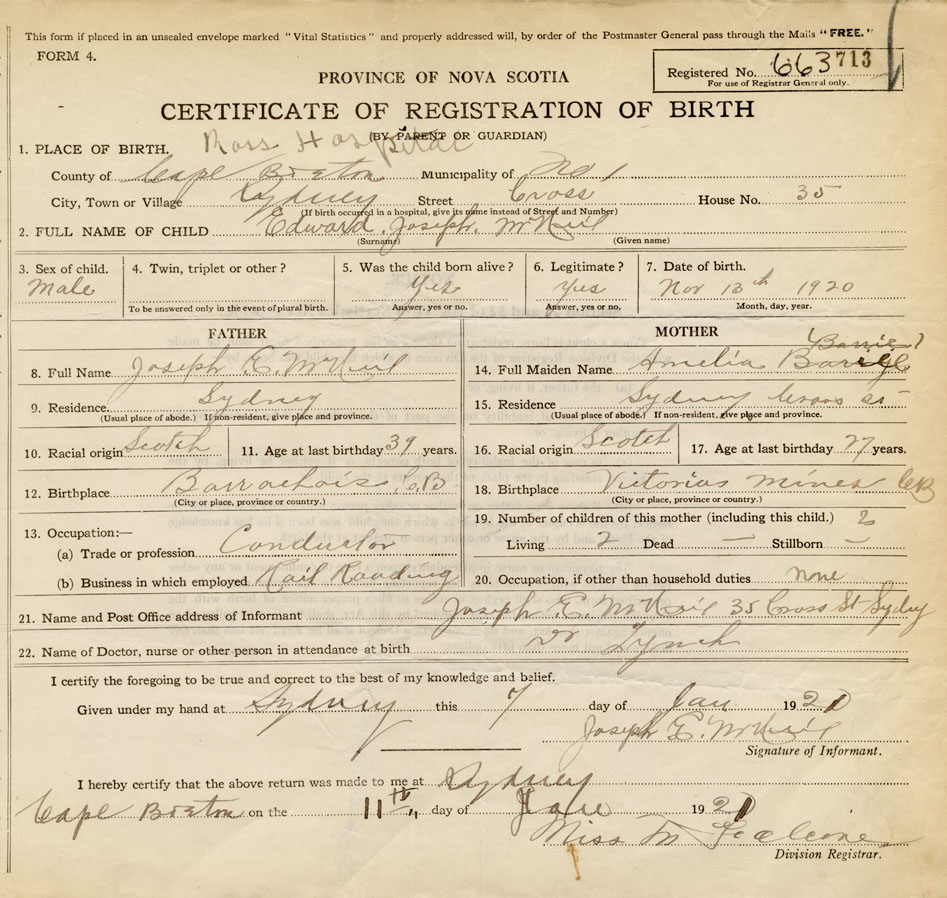 This form if placed in an unsealed envelope marked "Vital Statistics" and properly addressed will, by order of the Postmaster General pass through the Mails "FREE."
FORM 4.
Registered No. 663713
For use of Registrar General only.
PROVINCE OF NOVA SCOTIA
CERTIFICATE OF REGISTRATION OF BIRTH
(BY PARENT OR GUARDIAN)
Ross Hospital
1. PLACE OF BIRTH.
County of Cape Breton Municipality of No 1
City, Town or Village Sydney Street Cross House No. 35
(If birth occurred in a hospital, give its name instead of Street and Number)
2. FULL NAME OF CHILD Edward Joseph McNeil
(Surname) (Given name)
3. Sex of child. 4. Twin, triplet or other? 5. Was the child born alive? 6. Legitimate? 7. Date of birth.
Male Yes Yes Nov 13th 1920
To be answered only in the event of plural birth. Answer, yes or no. Answer, yes or no. Month, day, year.
FATHER
8. Full Name Joseph E. McNeil
9. Residence Sydney
(Usual place of abode.) If non-resident, give place and province.
10. Racial origin Scotch 11. Age at last birthday 39 years.
12. Birthplace Barrachois, C.B.
(City or place, province or country.)
13. Occupation:—
(a) Trade or profession Conductor
(b) Business in which employed Rail Roading
MOTHER
Barrie?
14. Full Maiden Name Amelia
15. Residence Sydney Cross St
(Usual place of abode.) If non-resident, give place and province.
16. Racial origin Scotch 17. Age at last birthday 27 years.
18. Birthplace Victorias Mines CB
(City or place, province or country.)
19. Number of children of this mother (including this child.) 2
Living 2 Dead — Stillborn —
20. Occupation, if other than household duties none
21. Name and Post Office address of Informant Joseph E. McNeil 35 Cross St Sydney
22. Name of Doctor, nurse or other person in attendance at birth Dr Lynch
I certify the foregoing to be true and correct to the best of my knowledge and belief.
Given under my hand at Sydney this 7 day of Jan 1921
Joseph E. McNeil
Signature of Informant.
I hereby certify that the above return was made to me at Sydney
Cape Breton on the 11th day of 1921
Miss M
Division Registrar.